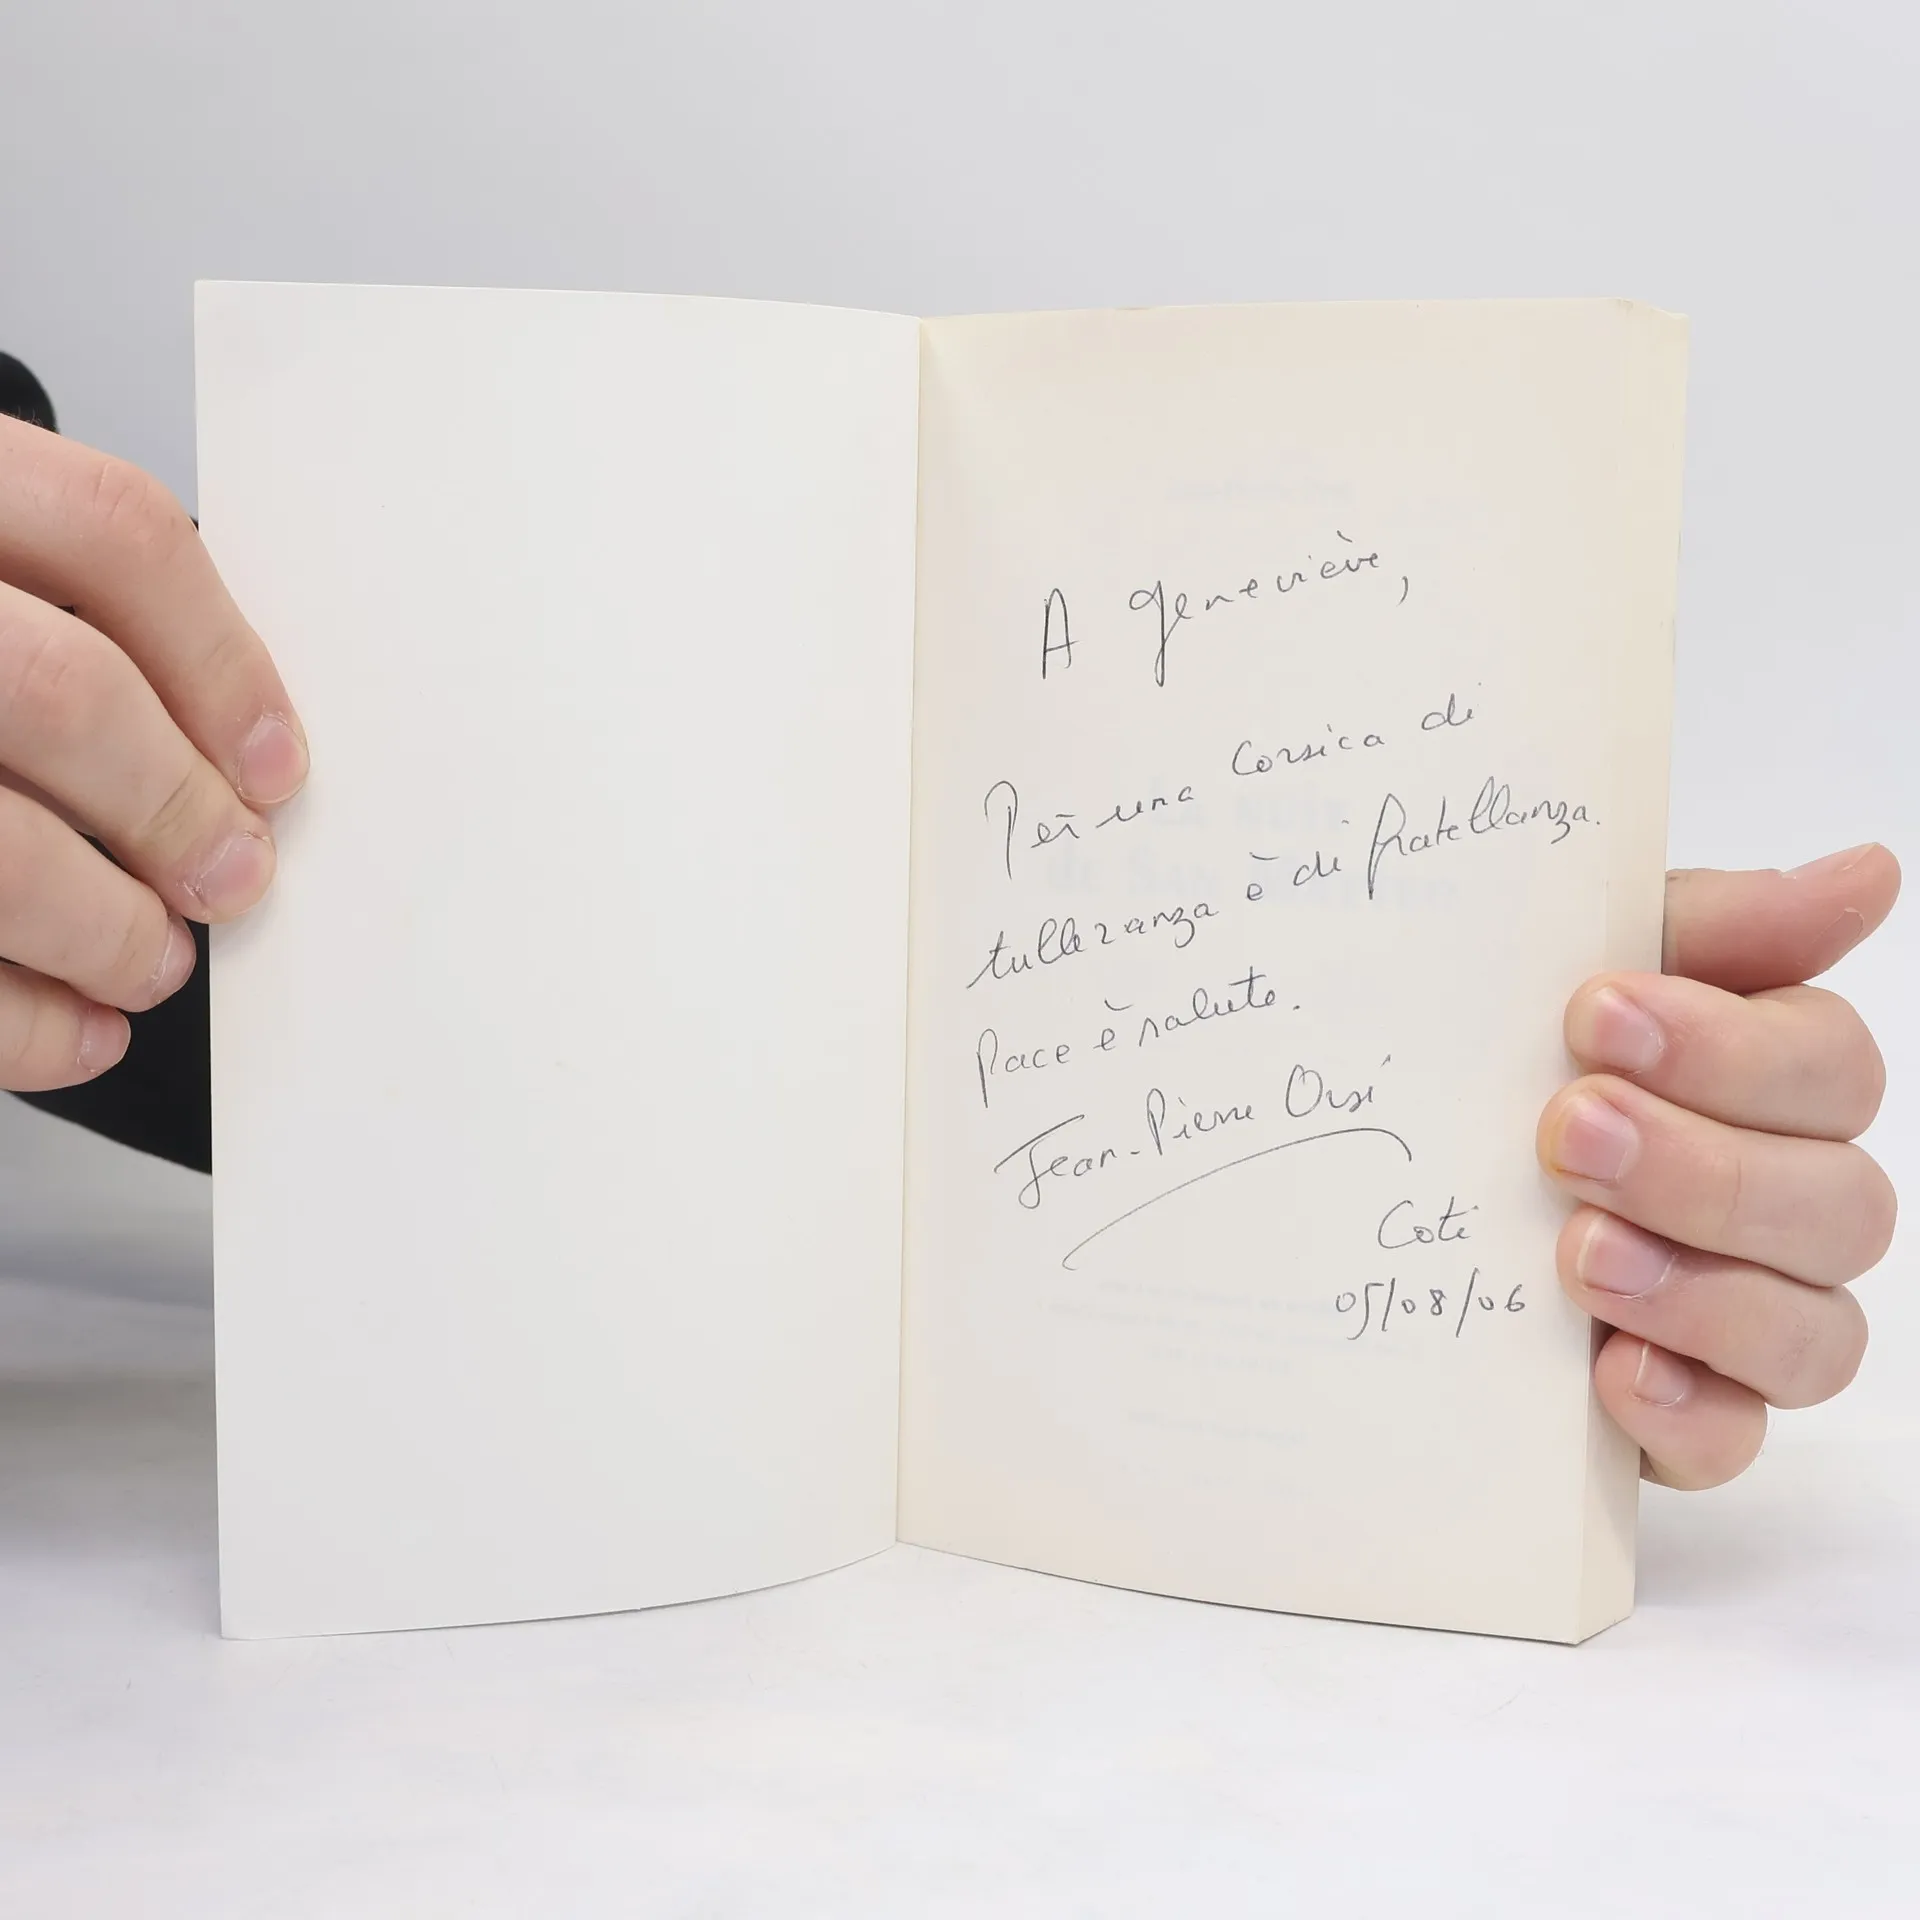 A Geneviève,
Per una Corsica di
tulleranza è di fratellanza.
Pace è salute.
Jean-Pierre Orsi
Coti
05/08/06